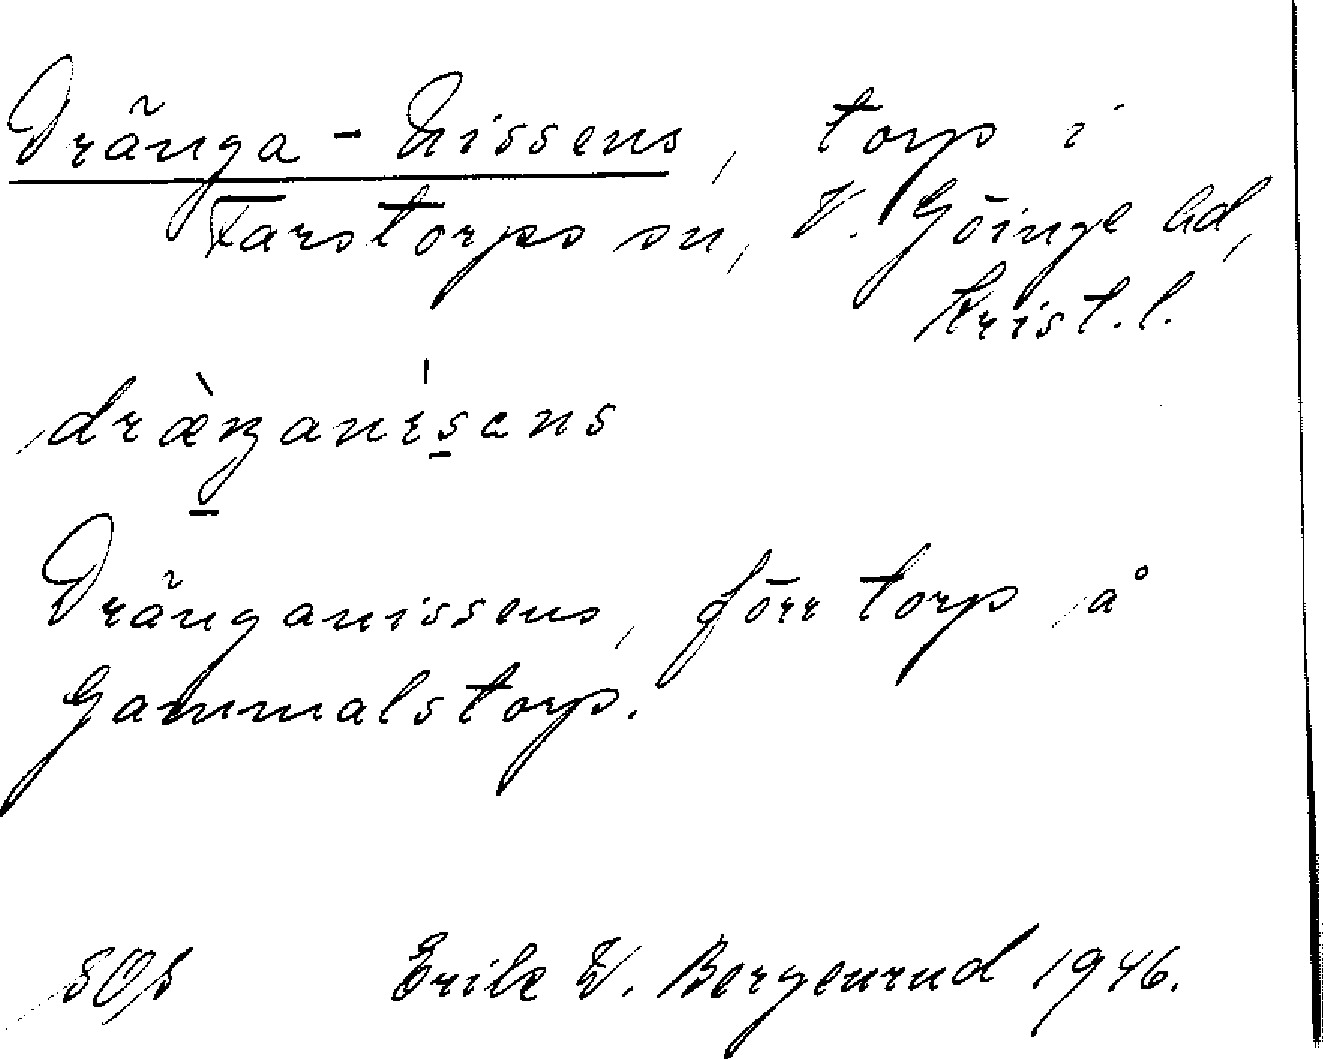 Dränga-Nissens, torp i
Farstorps sn, V. Göinge hd,
Krist. l.
dræ̀ŋanísens
Dränganissens, förr torp å
Gammalstorp.
SOS Erik W. Bergenrud 1946.